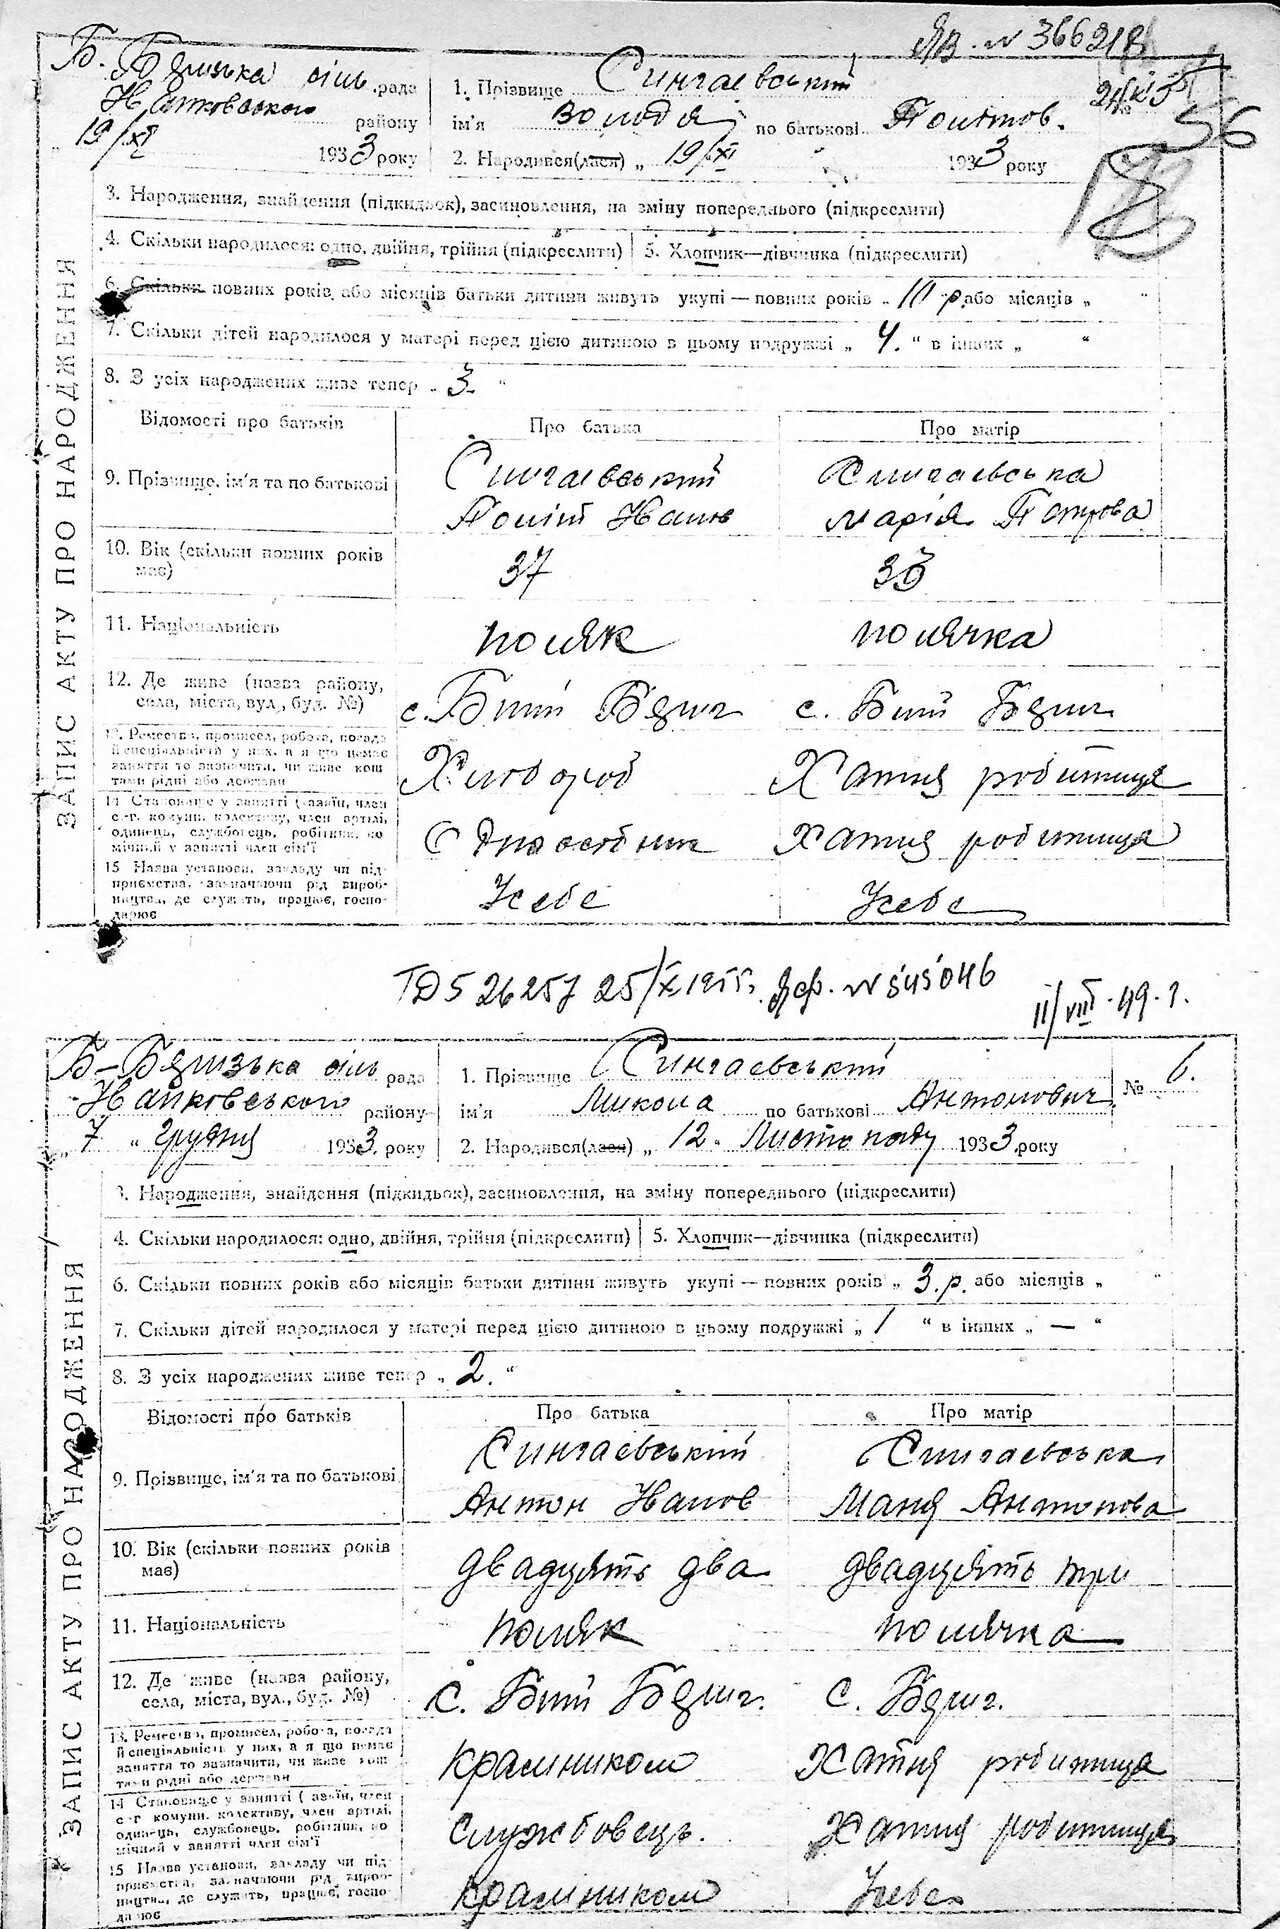 ЯВ. № 366218
Б.-Бязизька сіль.рада
району
19/XI 1933 року
1. Прізвище Сингаевський
ім'я Володя по батькові
2. Народився(лася) „ 19/XI 1933 року
56
ЗАПИС АКТУ ПРО НАРОДЖЕННЯ
3. Народження, знайдення (підкидьок), засиновлення, на зміну попереднього (підкреслити)
4. Скільки народилося: одно, двійня, трійня (підкреслити) 5. Хлопчик—дівчинка (підкреслити)
6. Скільки повних років або місяців батьки дитини живуть укупі — повних років „ 10 р. або місяців „ “
7. Скільки дітей народилося у матері перед цією дитиною в цьому подружжі „ 4. “ в інших „ “
8. З усіх народжених живе тепер „ 3. “
Відомості про батьків Про батька Про матір
9. Прізвище, ім'я та по батькові Сингаевський Сингаевська
Іванов Марія Петрова
10. Вік (скільки повних років має) 37 33
11. Національність поляк полячка
12. Де живе (назва району, села, міста, вул., буд. №) с. Білий с. Білий
13. Ремество, промисел, робота, посада й спеціяльність у них, а якщо немає заняття то зазначити, чи живе коштами рідні або держави Хлібороб Хатня робітниця
14 Становище у занятті (хазяїн, член с.-г. комуни, колективу, член артілі, одинець, службовець, робітник, помічний у занятті член сім'ї Одноосібник Хатня робітниця
15 Назва установи, закладу чи підприємства, зазначаючи рід виробництва, де служить, працює, господарює У себе У себе
ТД5 26257 25/X 1955г. № 545046
11/VIII-49.г.
Б-Бязизька сіль рада
району
„ 7 “ грудня 1933. року
1. Прізвище Сингаевський № 6.
ім'я Микола по батькові Антонович
2. Народився(лася) „ 12. Листопаду 1933 року
ЗАПИС АКТУ ПРО НАРОДЖЕННЯ
3. Народження, знайдення (підкидьок), засиновлення, на зміну попереднього (підкреслити)
4. Скільки народилося: одно, двійня, трійня (підкреслити) 5. Хлопчик—дівчинка (підкреслити)
6. Скільки повних років або місяців батьки дитини живуть укупі — повних років „ 3. р. або місяців „ “
7. Скільки дітей народилося у матері перед цією дитиною в цьому подружжі „ 1 “ в інших „ — “
8. З усіх народжених живе тепер „ 2. “
Відомості про батьків Про батька Про матір
9. Прізвище, ім'я та по батькові Сингаевський Сингаевська
Антон Іванов Маня Антонова
10. Вік (скільки повних років має) двадцять два двадцять три
11. Національність поляк полячка
12. Де живе (назва району, села, міста, вул., буд. №) с. Білий с.
13. Ремество, промисел, робота, посада й спеціяльність у них, а якщо немає заняття то зазначити, чи живе коштами рідні або держави крамником Хатня робітниця
14 Становище у занятті (хазяїн, член с.-г. комуни, колективу, член артілі, одинець, службовець, робітник, помічний у занятті член сім'ї службовець. Хатня робітниця
15 Назва установи, закладу чи підприємства, зазначаючи рід виробництва, де служить, працює, господарює крамником У себе